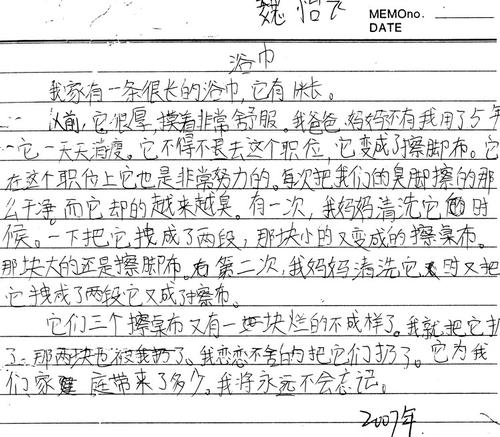 魏怡
MEMOno.
DATE
浴巾
我家有一条很长的浴巾,它有1米长。
以前,它很厚,摸着非常舒服。我爸爸、妈妈还有我用了5年
它一天天消瘦。它不得不退去这个职位,它变成了擦脚布。它
在这个职位上它也是非常努力的。每次把我们的臭脚擦的那
么干净。而它却的越来越臭。有一次,我妈妈清洗它的时
候。一下把它拽成了两段,那块小的又变成的擦桌布。
那块大的还是擦脚布。第二次,我妈妈清洗它时又把
它拽成了两段它又成了擦布。
它们三个擦桌布又有一块烂的不成样了。我就把它扔
了那两块也被我扔了。我恋恋不舍的把它们扔了。它为我
们家庭带来了多少。我将永远不会忘记。
2007年